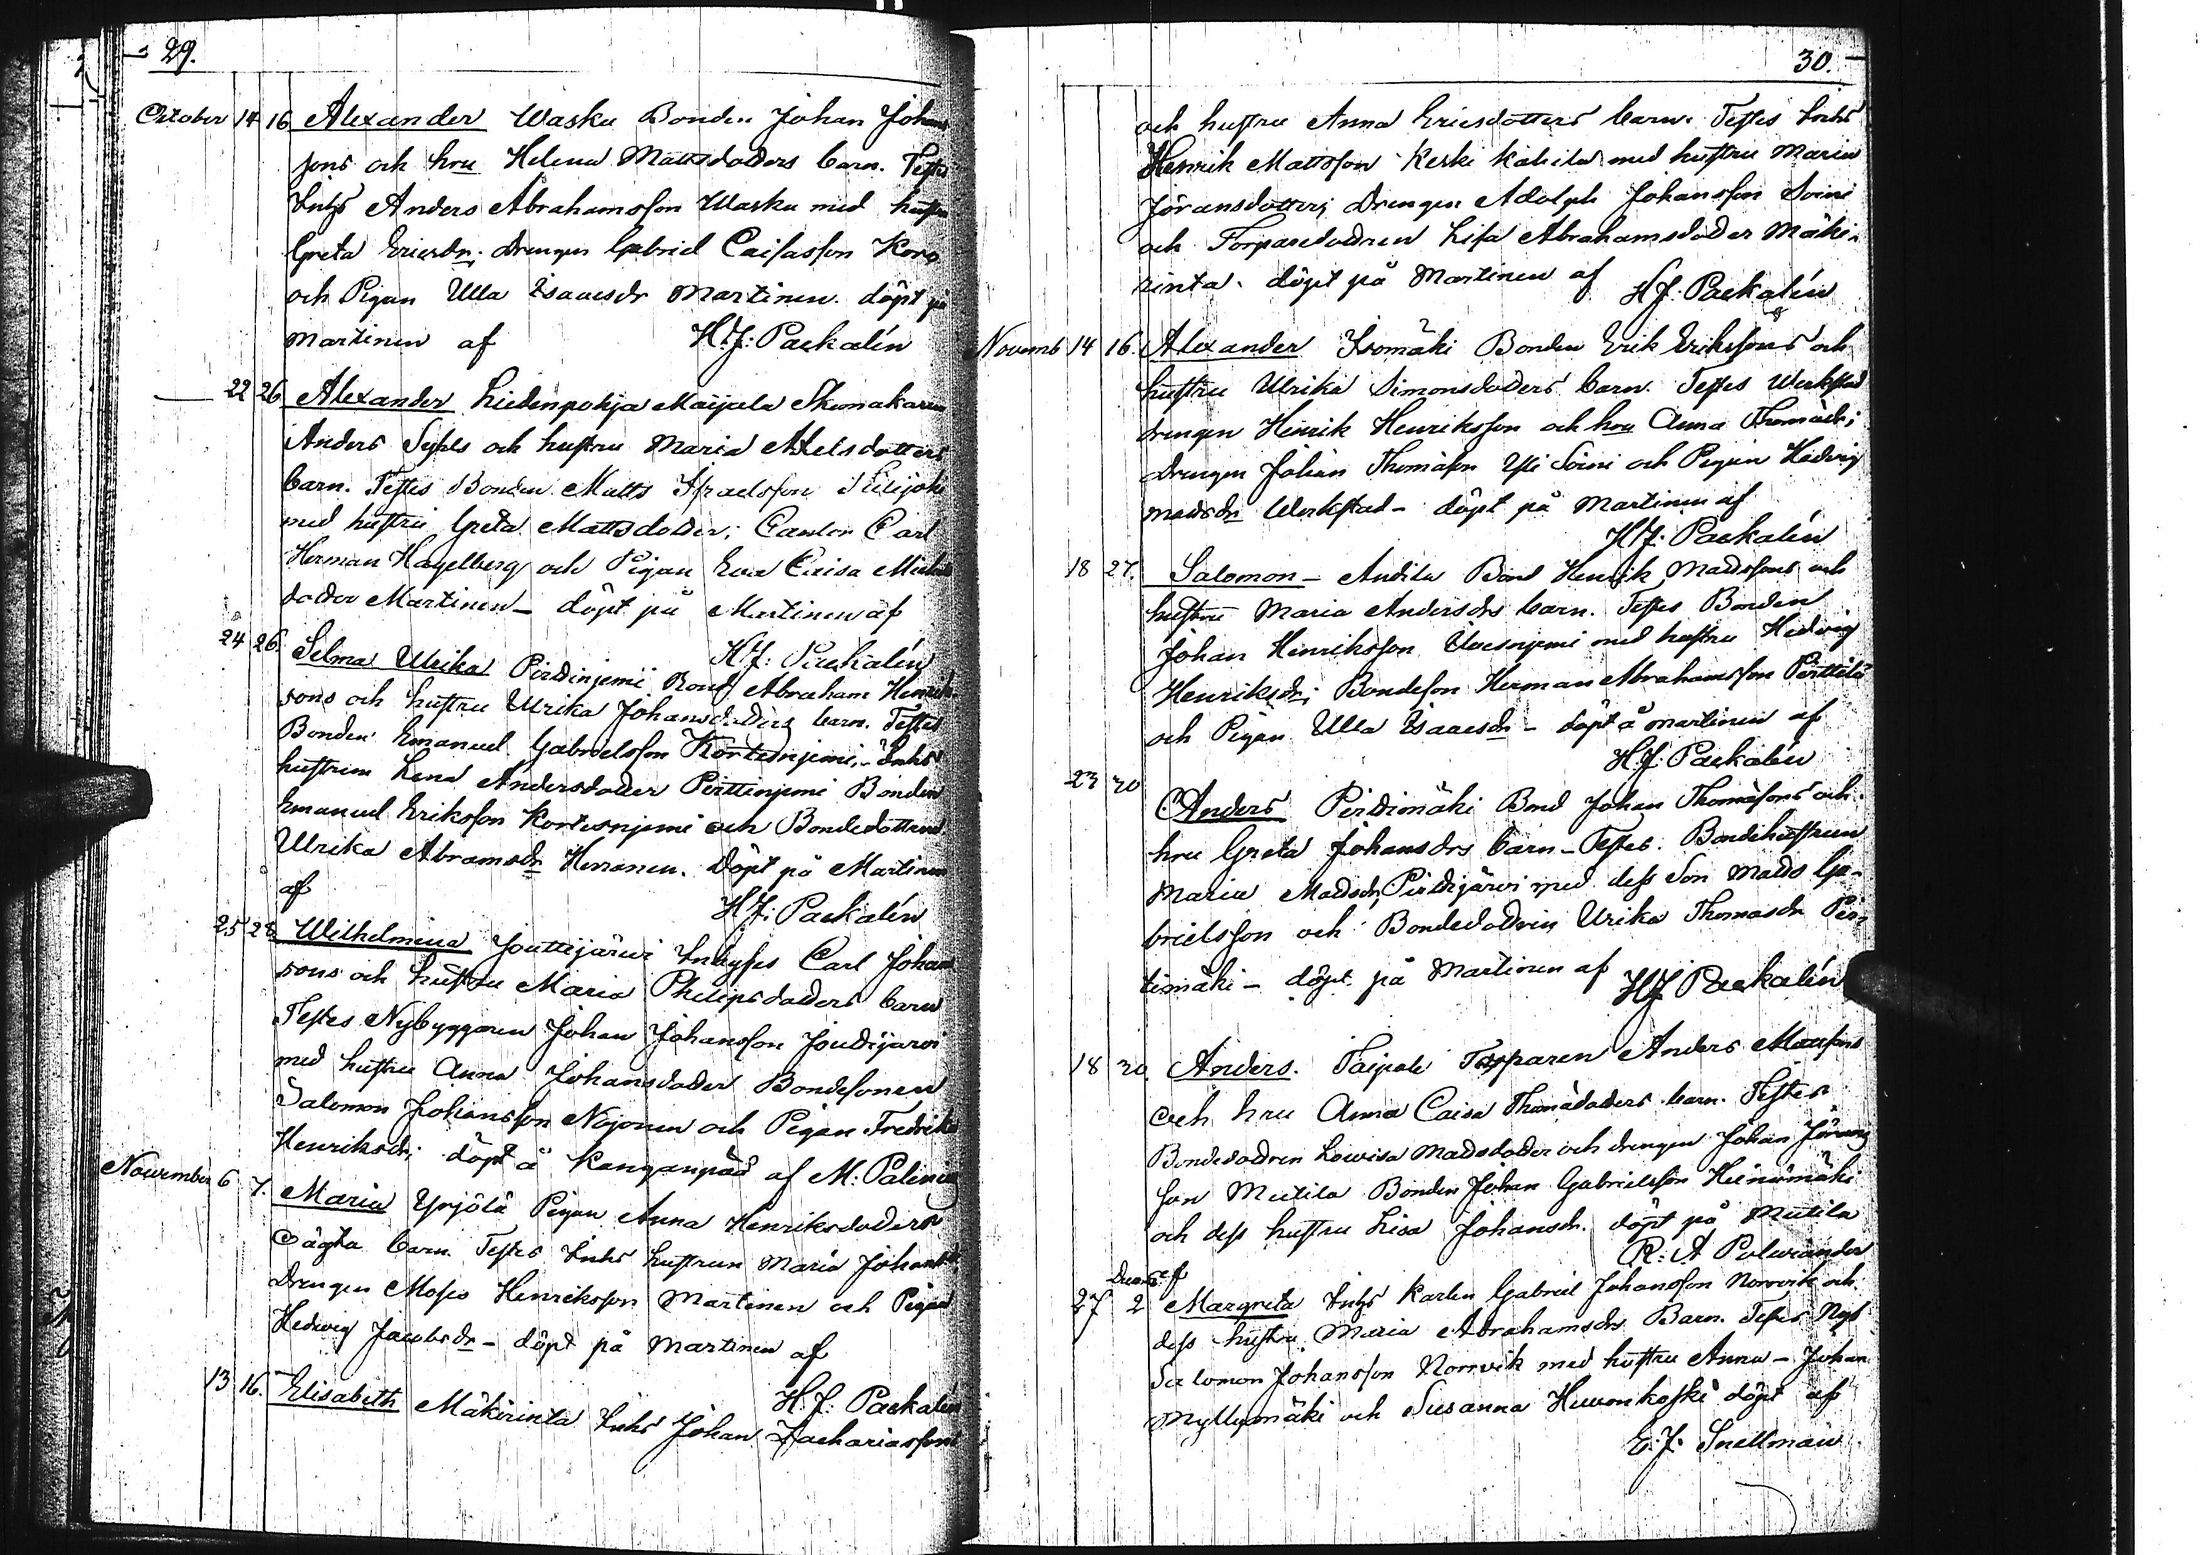 29.
October 14 16 Alexander Wasku Bonden Johan Johans
sons och hru Helena Mattsdotters barn. Testes
Inhs Anders Abrahamsson Wasku med hustru
Greta Ericsdr; drengen Gabriel Caisasson Korp
och Pigan Ulla Isaacsdr Martinen. döpt på
Martinen af H.J: Paekalén
22 26 Alexander Liedenpohja Maijala Skomakaren
Anders Sjbls och hustru Maria Axelsdotters
barn. Testes Bonden Matts Israelsson
med hustru Greta Mattsdotter; Cantor Carl
Herman Hagelberg och Pigan Eva Caisa Michels
dotter Martinen – döpt på Martinen af
H.J: Paekalén
24 26 Selma Ulrika Pirdinjemi Bond Abraham Henrik
sons och hustru Ulrika Johansdotters barn. Testes
Bonden Emanuel Gabrielsson Kortesnjemi, Inhs
hustrun Lena Andersdotter Pirttinjemi Bonden
Emanuel Eriksson Kortesnjemi och Bondedottren
Ulrika Abramsdr Herronen. döpt på Martinen
af H.J: Paekalén
25 28 Wilhelmina Jouttijärvi Inhyses Carl Johans
sons och hustru Maria Philipsdotters barn
Testes Nybyggaren Johan Johansson Jouttijärvi
med hustru Anna Johansdotter Bondesonen
Salomon Johansson Nojonen och Pigan Fredrika
Henriksdr; döpt å Kanganpää af M: Palin
November 6 7. Maria Yrjölä Pigan Anna Henriksdotters
oägta barn. Testes Inhs hustrun Maria Johansdr
Drengen Moses Henriksson Martinen och Pigan
Hedwig Jacobsdr – döpt på Martinen af
H.J: Paekalén
13 16. Elisabeth Mäkirinta Inhs Johan Zachariassons
30.
och hustru Anna Ericsdotters barn. Testes Inhs
Henrik Mattsson Keski Kahila med hustru Maria
Jöransdotter; Drengen Adolph Johansson Soini
och Torparedottren Lisa Abrahamsdotter Mäki-
rinta. döpt på Martinen af H.J: Paekalén
Novemb 14 16. Alexander Isomäki Bonden Erik Erikssons och
hustru Ulrika Simonsdotters barn. Testes Werkstad
drengen Henrik Henriksson och hru Anna Thomädr;
drengen Johan Thomäson Yli Soini och Pigan Hedvig
madsdr Werkstad – döpt på Martinen af
H.J: Paekalén
18 27. Salomon – Andila Bond Henrik Madssons och
hustru Maria Andersdrs barn. Testes Bonden
Johan Henriksson med hustru Hedvig
Henriksdr; Bondeson Herman Abrahamsson Perttilä
och Pigan Ulla Isaacsdr – döpt å Martinen af
H.J: Paekalén
23 30 Anders Pirdimäki Bond Johan Thomäsons och
hru Greta Johansdrs barn – Testes. Bondehustrun
Maria Madsdr Pirdijärvi med dess Son Mads Ga-
brielsson och Bondedottren Ulrika Thomasdr Pir-
timäki – döpt på Martinen af H.J Paekalén
18 30 Anders. Taipale Torparen Anders Mausons
och hru Anna Caisa Thomädotters barn. Testes
Bondedottren Lowisa Madsdotter och drengen Johan Jörans
son Mutila Bonden Johan Gabrielsson Heinämäki
och dess hustru Lisa Johansdr. döpt på Mutila
af R: A Polviander
27 Decemb 2 Margreta Inhs Karlen Gabriel Johansson Norrvik och
dess hustru Maria Abrahamsdrs Barn. Testes Nyb
Salomon Johansson Norrvik med hustru Anna – Johan
Myllymäki och Susanna Huvonkoski döpt af
E.J. Snellman